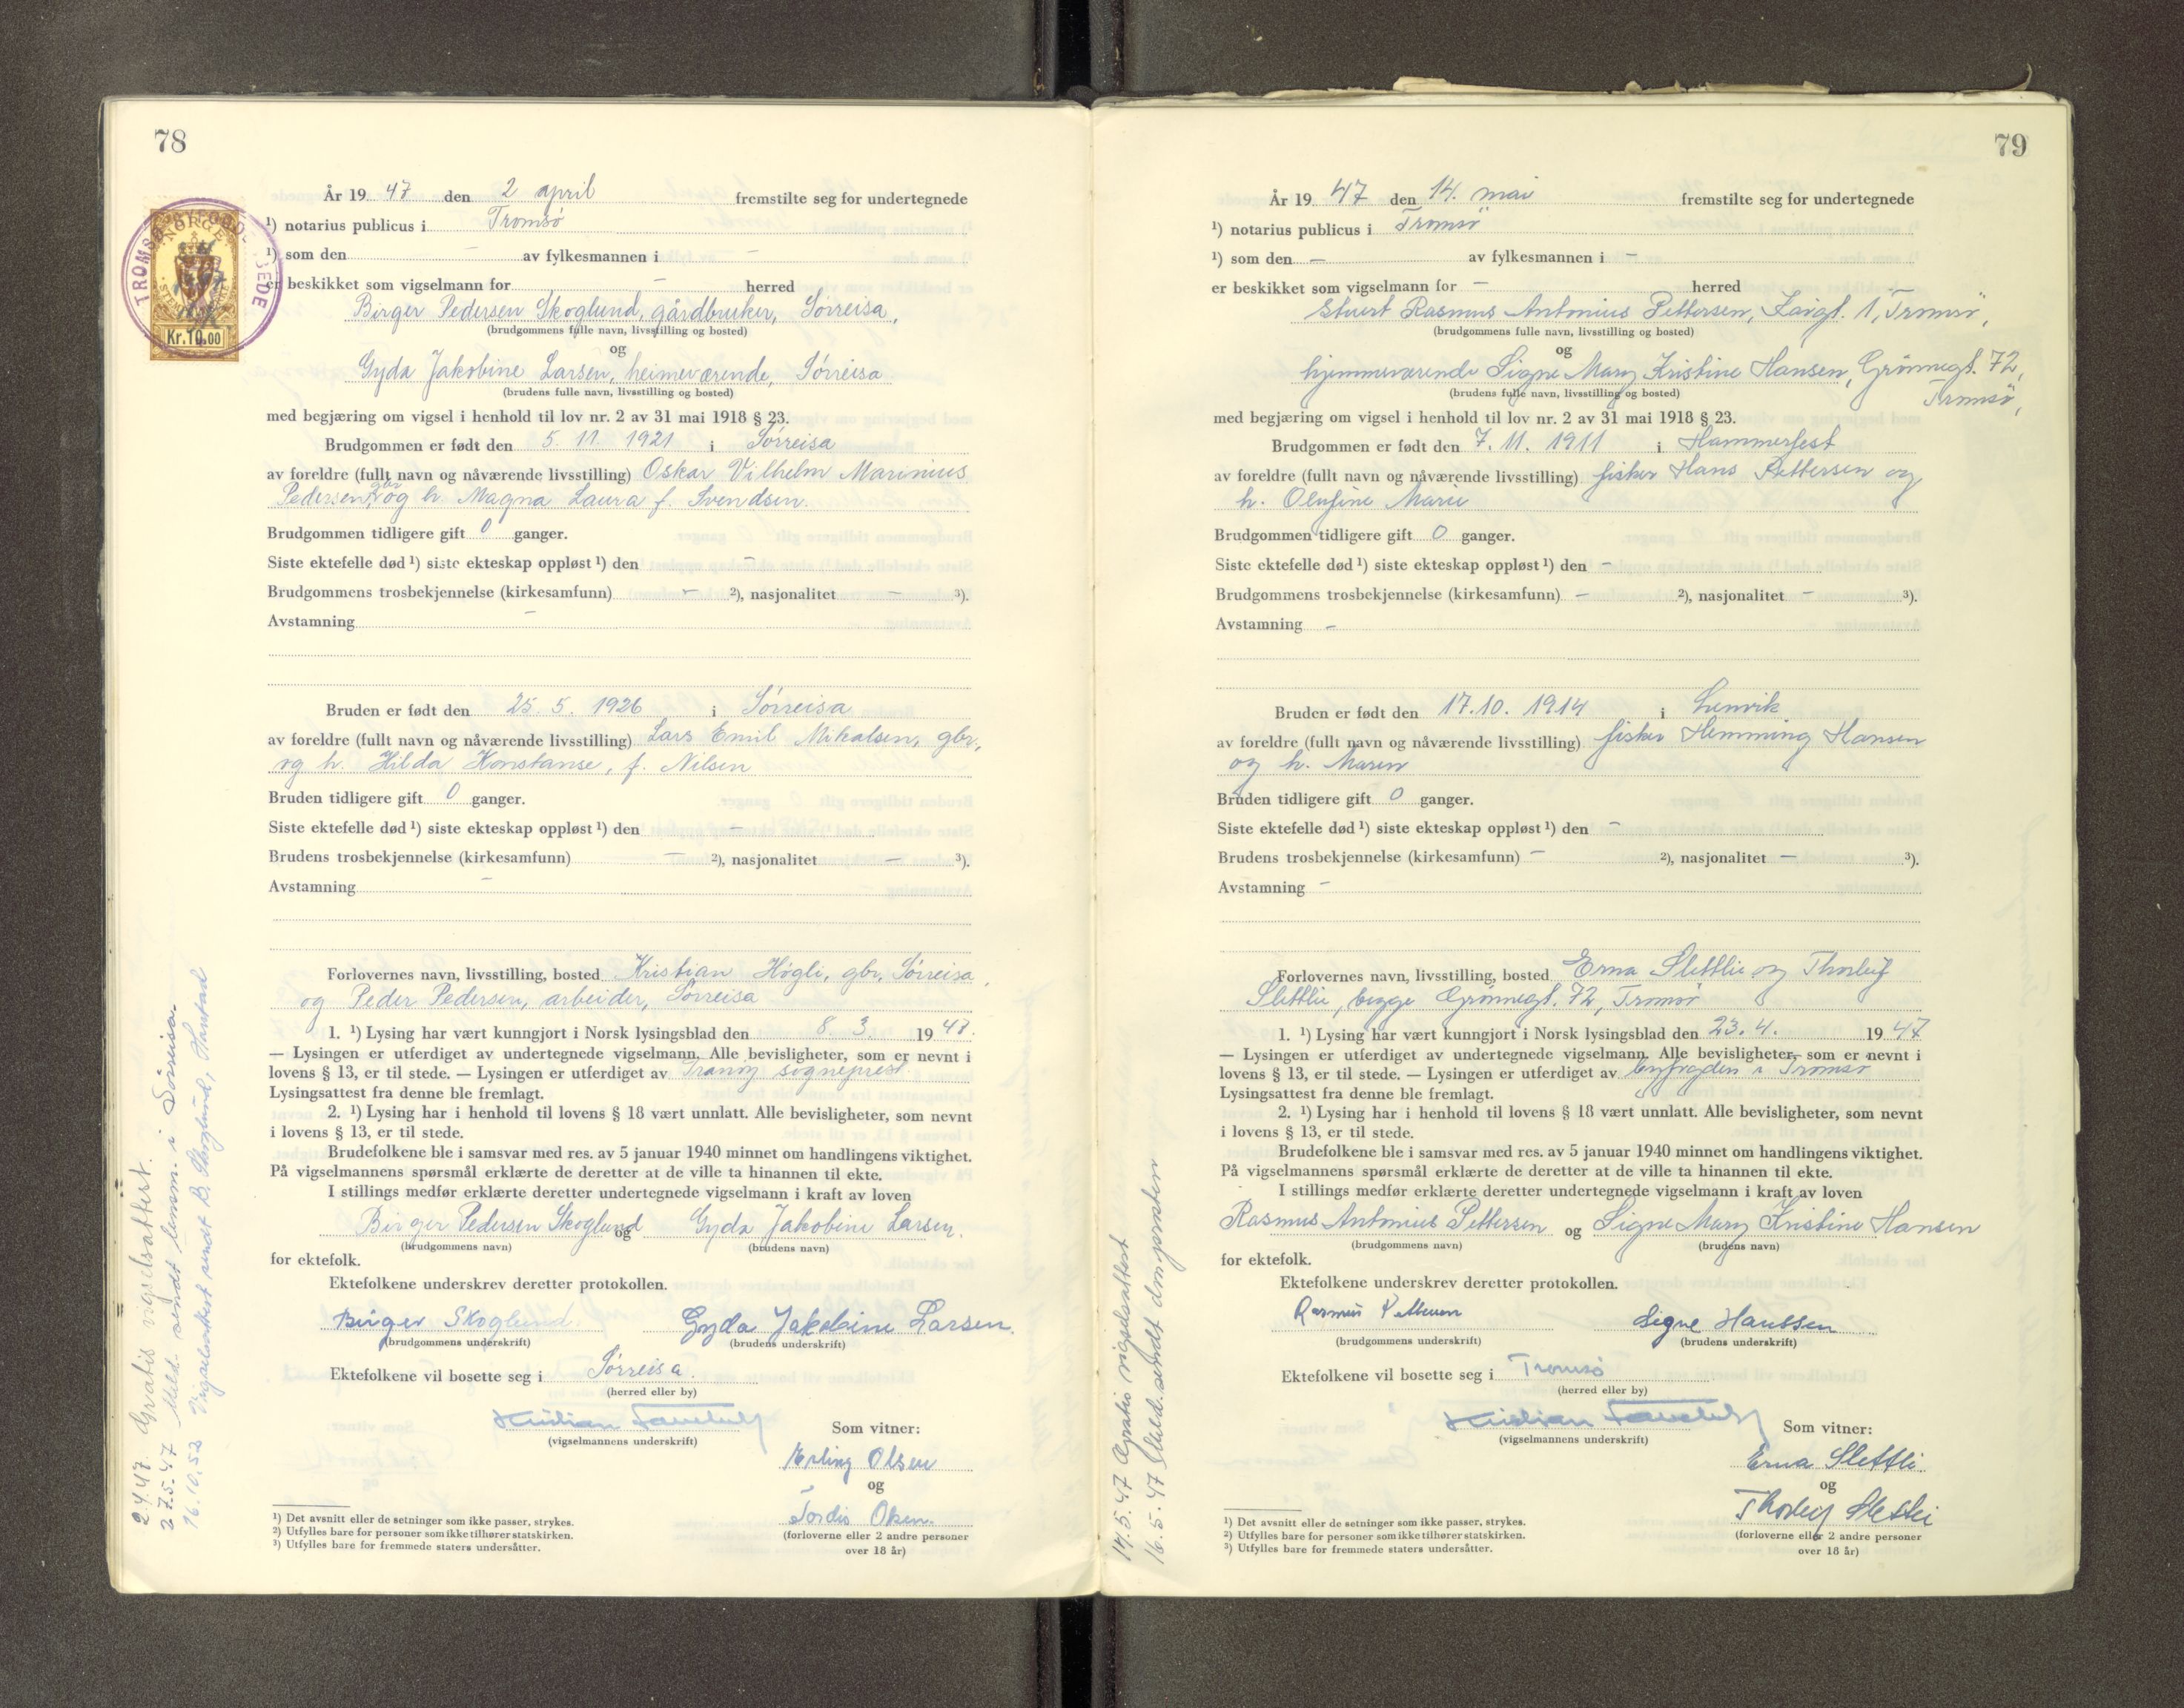 78
År 19 47 den 2 april fremstilte seg for undertegnede
¹) notarius publicus i Tromsø
¹) som den – av fylkesmannen i –
er beskikket som vigselmann for – herred
Birger Pedersen Skoglund, gårdbruker, Sørreisa,
(brudgommens fulle navn, livsstilling og bosted)
og
Gyda Jakobine Larsen, heimeværende, Sørreisa
(brudens fulle navn, livsstilling og bosted)
med begjæring om vigsel i henhold til lov nr. 2 av 31 mai 1918 § 23.
Brudgommen er født den 5. 11. 1921 i Sørreisa
av foreldre (fullt navn og nåværende livsstilling) Oskar Vilhelm Marinius
Pedersen, gbr og h. Magna Laura f. Svendsen.
Brudgommen tidligere gift 0 ganger.
Siste ektefelle død ¹) siste ekteskap oppløst ¹) den –
Brudgommens trosbekjennelse (kirkesamfunn) – ²), nasjonalitet – ³).
Avstamning –
Bruden er født den 25. 5. 1926 i Sørreisa
av foreldre (fullt navn og nåværende livsstilling) Lars Emil Mikalsen, gbr,
og h. Hilda Konstanse, f. Nilsen
Bruden tidligere gift 0 ganger.
Siste ektefelle død ¹) siste ekteskap oppløst ¹) den –
Brudens trosbekjennelse (kirkesamfunn) – ²), nasjonalitet – ³).
Avstamning –
Forlovernes navn, livsstilling, bosted Kristian Høgli, gbr, Sørreisa,
og Peder Pedersen, arbeider, Sørreisa
1. ¹) Lysing har vært kunngjort i Norsk lysingsblad den 8. 3. 19 47.
— Lysingen er utferdiget av undertegnede vigselmann. Alle bevisligheter, som er nevnt i
lovens § 13, er til stede. — Lysingen er utferdiget av Tranøy sogneprest.
Lysingsattest fra denne ble fremlagt.
2. ¹) Lysing har i henhold til lovens § 18 vært unnlatt. Alle bevisligheter, som nevnt
i lovens § 13, er til stede.
Brudefolkene ble i samsvar med res. av 5 januar 1940 minnet om handlingens viktighet.
På vigselmannens spørsmål erklærte de deretter at de ville ta hinannen til ekte.
I stillings medfør erklærte deretter undertegnede vigselmann i kraft av loven
Birger Pedersen Skoglund og Gyda Jakobine Larsen.
(brudgommens navn) (brudens navn)
for ektefolk.
Ektefolkene underskrev deretter protokollen.
Birger Skoglund Gyda Jakobine Larsen.
(brudgommens underskrift) (brudens underskrift)
Ektefolkene vil bosette seg i Sørreisa.
(herred eller by)
Kristian
(vigselmannens underskrift)
Som vitner:
Erling Olsen
og
Tordis Olsen.
(forloverne eller 2 andre personer
over 18 år)
¹) Det avsnitt eller de setninger som ikke passer, strykes.
²) Utfylles bare for personer som ikke tilhører statskirken.
³) Utfylles bare for fremmede staters undersåtter.
2.4.47. Gratis vigselsattest.
27.5.47 Meld. sendt lensm. i Sørreisa.
16.10.52 Vigselsattest sendt B. Skoglund, Harstad
NORGE
Kr. 10.00
79
År 19 47 den 14. mai fremstilte seg for undertegnede
¹) notarius publicus i Tromsø
¹) som den – av fylkesmannen i –
er beskikket som vigselmann for – herred
Stuert Rasmus Antonius Pettersen, Kaigt. 1, Tromsø,
(brudgommens fulle navn, livsstilling og bosted)
og
hjemmeværende Signe Mary Kristine Hansen, Grønnegt. 72,
Tromsø,
(brudens fulle navn, livsstilling og bosted)
med begjæring om vigsel i henhold til lov nr. 2 av 31 mai 1918 § 23.
Brudgommen er født den 7. 11. 1911 i Hammerfest
av foreldre (fullt navn og nåværende livsstilling) fisker Hans Pettersen og
h. Olufine Marie
Brudgommen tidligere gift 0 ganger.
Siste ektefelle død ¹) siste ekteskap oppløst ¹) den –
Brudgommens trosbekjennelse (kirkesamfunn) – ²), nasjonalitet – ³).
Avstamning –
Bruden er født den 17. 10. 1914 i Lenvik
av foreldre (fullt navn og nåværende livsstilling) fisker Hemming Hansen
og h. Maren
Bruden tidligere gift 0 ganger.
Siste ektefelle død ¹) siste ekteskap oppløst ¹) den –
Brudens trosbekjennelse (kirkesamfunn) – ²), nasjonalitet – ³).
Avstamning –
Forlovernes navn, livsstilling, bosted Erna Slettlie og Thorleif
Slettlie, begge Grønnegt. 72, Tromsø
1. ¹) Lysing har vært kunngjort i Norsk lysingsblad den 23. 4. 19 47
— Lysingen er utferdiget av undertegnede vigselmann. Alle bevisligheter, som er nevnt i
lovens § 13, er til stede. — Lysingen er utferdiget av byfogden i Tromsø
Lysingsattest fra denne ble fremlagt.
2. ¹) Lysing har i henhold til lovens § 18 vært unnlatt. Alle bevisligheter, som nevnt
i lovens § 13, er til stede.
Brudefolkene ble i samsvar med res. av 5 januar 1940 minnet om handlingens viktighet.
På vigselmannens spørsmål erklærte de deretter at de ville ta hinannen til ekte.
I stillings medfør erklærte deretter undertegnede vigselmann i kraft av loven
Rasmus Antonius Pettersen og Signe Mary Kristine Hansen
(brudgommens navn) (brudens navn)
for ektefolk.
Ektefolkene underskrev deretter protokollen.
Rasmus Pettersen Signe Hanssen
(brudgommens underskrift) (brudens underskrift)
Ektefolkene vil bosette seg i Tromsø
(herred eller by)
Kristian
(vigselmannens underskrift)
Som vitner:
Erna Slettli
og
Thorleif Slettli
(forloverne eller 2 andre personer
over 18 år)
¹) Det avsnitt eller de setninger som ikke passer, strykes.
²) Utfylles bare for personer som ikke tilhører statskirken.
³) Utfylles bare for fremmede staters undersåtter.
14.5.47 Gratis vigselsattest
16.5.47 Meld. sendt domprosten